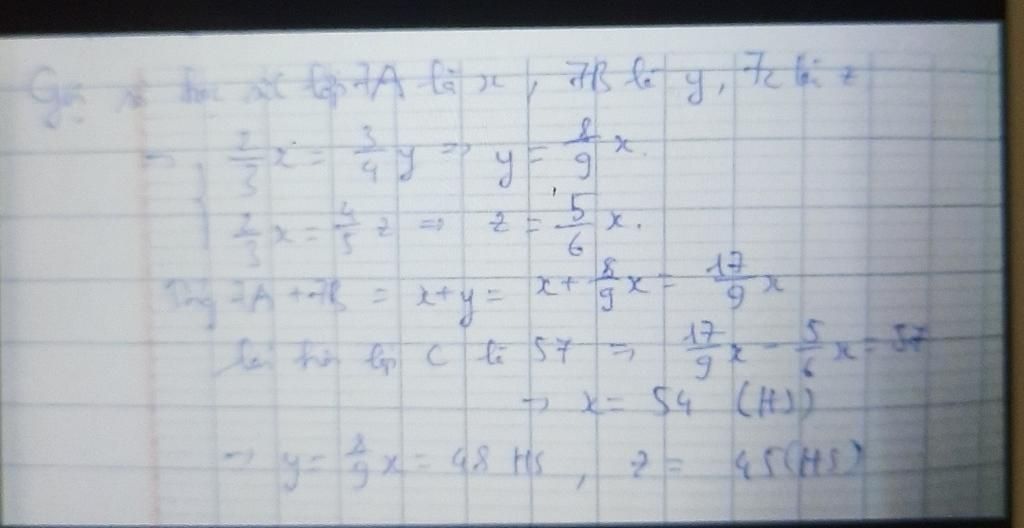 Gọi số học sinh lớp 7A là x, 7B là y, 7C là z
→ 2/3 x = 3/4 y => y = 8/9 x.
2/3 x = 4/5 z => z = 5/6 x.
Tổng 7A + 7B = x + y = x + 8/9 x = 17/9 x
hơn lớp C là 57 => 17/9 x - 5/6 x = 57
→ x = 54 (HS)
→ y = 8/9 x = 48 HS, z = 45 (HS)